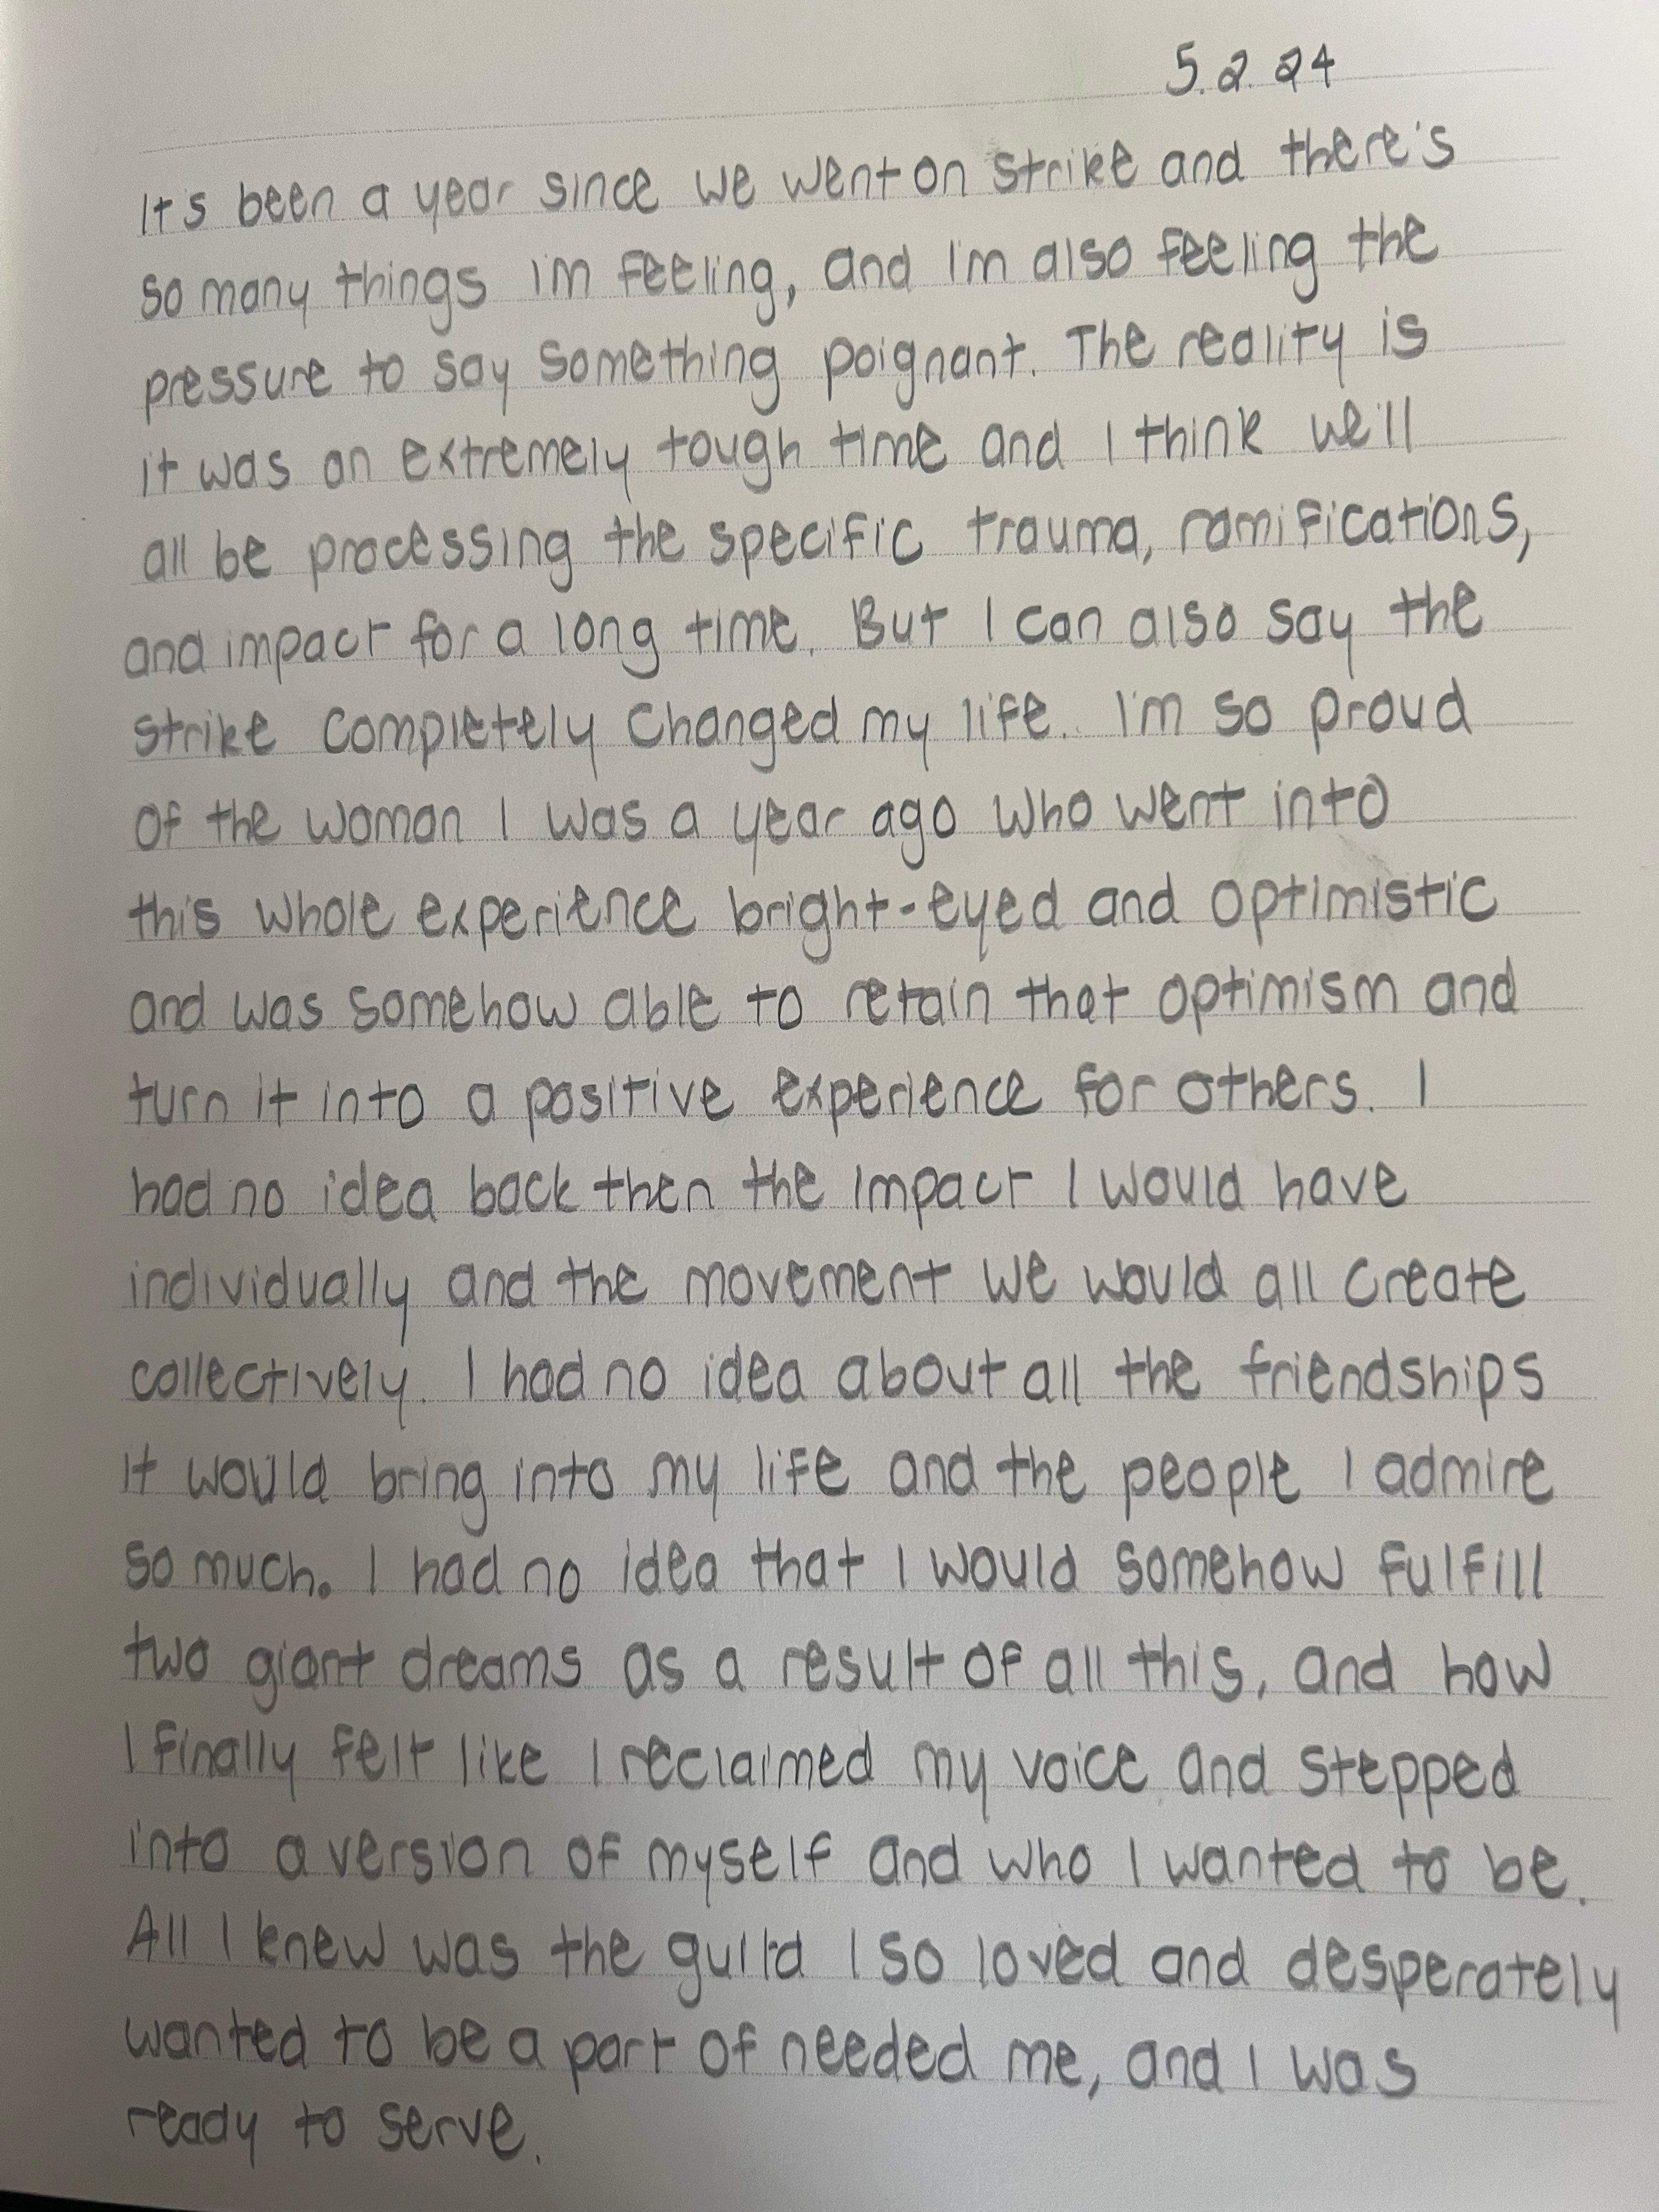 5.2.24
It's been a year since we went on strike and there's
so many things I'm feeling, and I'm also feeling the
pressure to say something poignant. The reality is
it was an extremely tough time and I think we'll
all be processing the specific trauma, ramifications,
and impact for a long time. But I can also say the
strike completely changed my life. I'm so proud
of the woman I was a year ago who went into
this whole experience bright-eyed and optimistic
and was somehow able to retain that optimism and
turn it into a positive experience for others. I
had no idea back then the impact I would have
individually and the movement we would all create
collectively. I had no idea about all the friendships
it would bring into my life and the people I admire
so much. I had no idea that I would somehow fulfill
two giant dreams as a result of all this, and how
I finally felt like I reclaimed my voice and stepped
into a version of myself and who I wanted to be.
All I knew was the guild I so loved and desperately
wanted to be a part of needed me, and I was
ready to serve.